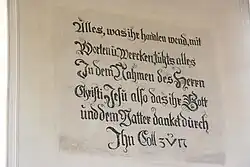 Alles, was ihr handlen wend, mit
Worten u Wercken, tühts alles
In dem Nahmen des Herrn
Christi Jesu also das ihr Gott
und dem Vatter dancket durch
Ihn Coll 3 V 17